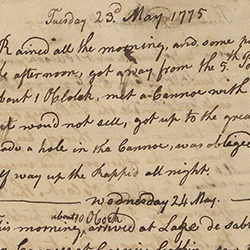 Tuesday 23d. May 1775
Rained all the morning, and some pa
e afternoon, got away from the 5th
bout 1 OClock, met a Cannoe with
ut woud not sell, got up to the grea
ade a hole in the Cannoe, was oblige
f way up the Rappid all night.
Wednesday 24 May.
about 10 OClock
is morning, arrived at Lake de sa